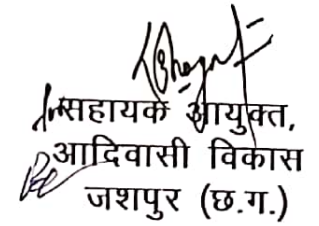 सहायक आयुक्त,
आदिवासी विकास
जशपुर (छ.ग.)